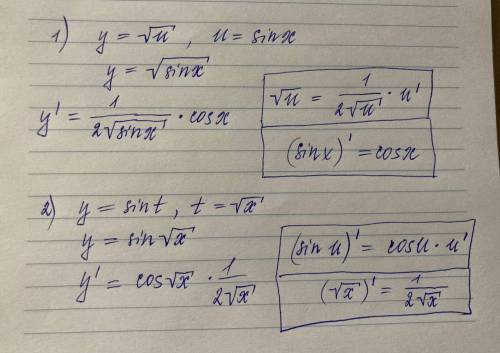 1) y = √u , u = sinx
y = √sinx
y' = 1/(2√sinx) · cosx
√u = 1/(2√u) · u'
(sinx)' = cosx
2) y = sint, t = √x
y = sin√x
y' = cos√x · 1/(2√x)
(sin u)' = cosu · u'
(√x)' = 1/(2√x)